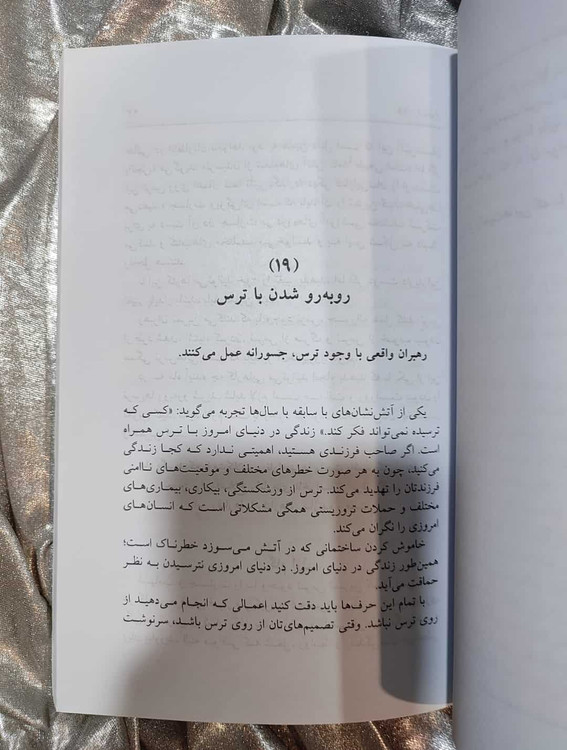 (۱۹)
روبه‌رو شدن با ترس
رهبران واقعی با وجود ترس، جسورانه عمل می‌کنند.
یکی از آتش‌نشان‌های با سابقه با سال‌ها تجربه می‌گوید: «کسی که
ترسیده نمی‌تواند فکر کند.» زندگی در دنیای امروز با ترس همراه
است. اگر صاحب فرزندی هستید، اهمیتی ندارد که کجا زندگی
می‌کنید، چون به هر صورت خطرهای مختلف و موقعیت‌های ناامنی
فرزندتان را تهدید می‌کند. ترس از ورشکستگی، بیکاری، بیماری‌های
مختلف و حملات تروریستی همگی مشکلاتی است که انسان‌های
امروزی را نگران می‌کند.
خاموش کردن ساختمانی که در آتش می‌سوزد خطرناک است؛
همین‌طور زندگی در دنیای امروز. در دنیای امروزی نترسیدن به نظر
حماقت می‌آید.
با تمام این حرف‌ها باید دقت کنید اعمالی که انجام می‌دهید از
روی ترس نباشد. وقتی تصمیم‌های‌تان از روی ترس باشد، سرنوشت